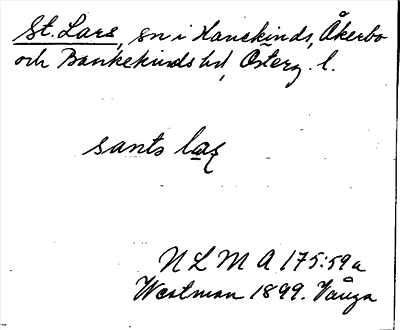 St. Lars, sn i Hanekinds, Åkerbo
och Bankekinds hd, Österg. l.
sants las
N L M A 175:59a
Westman 1899. Vånga